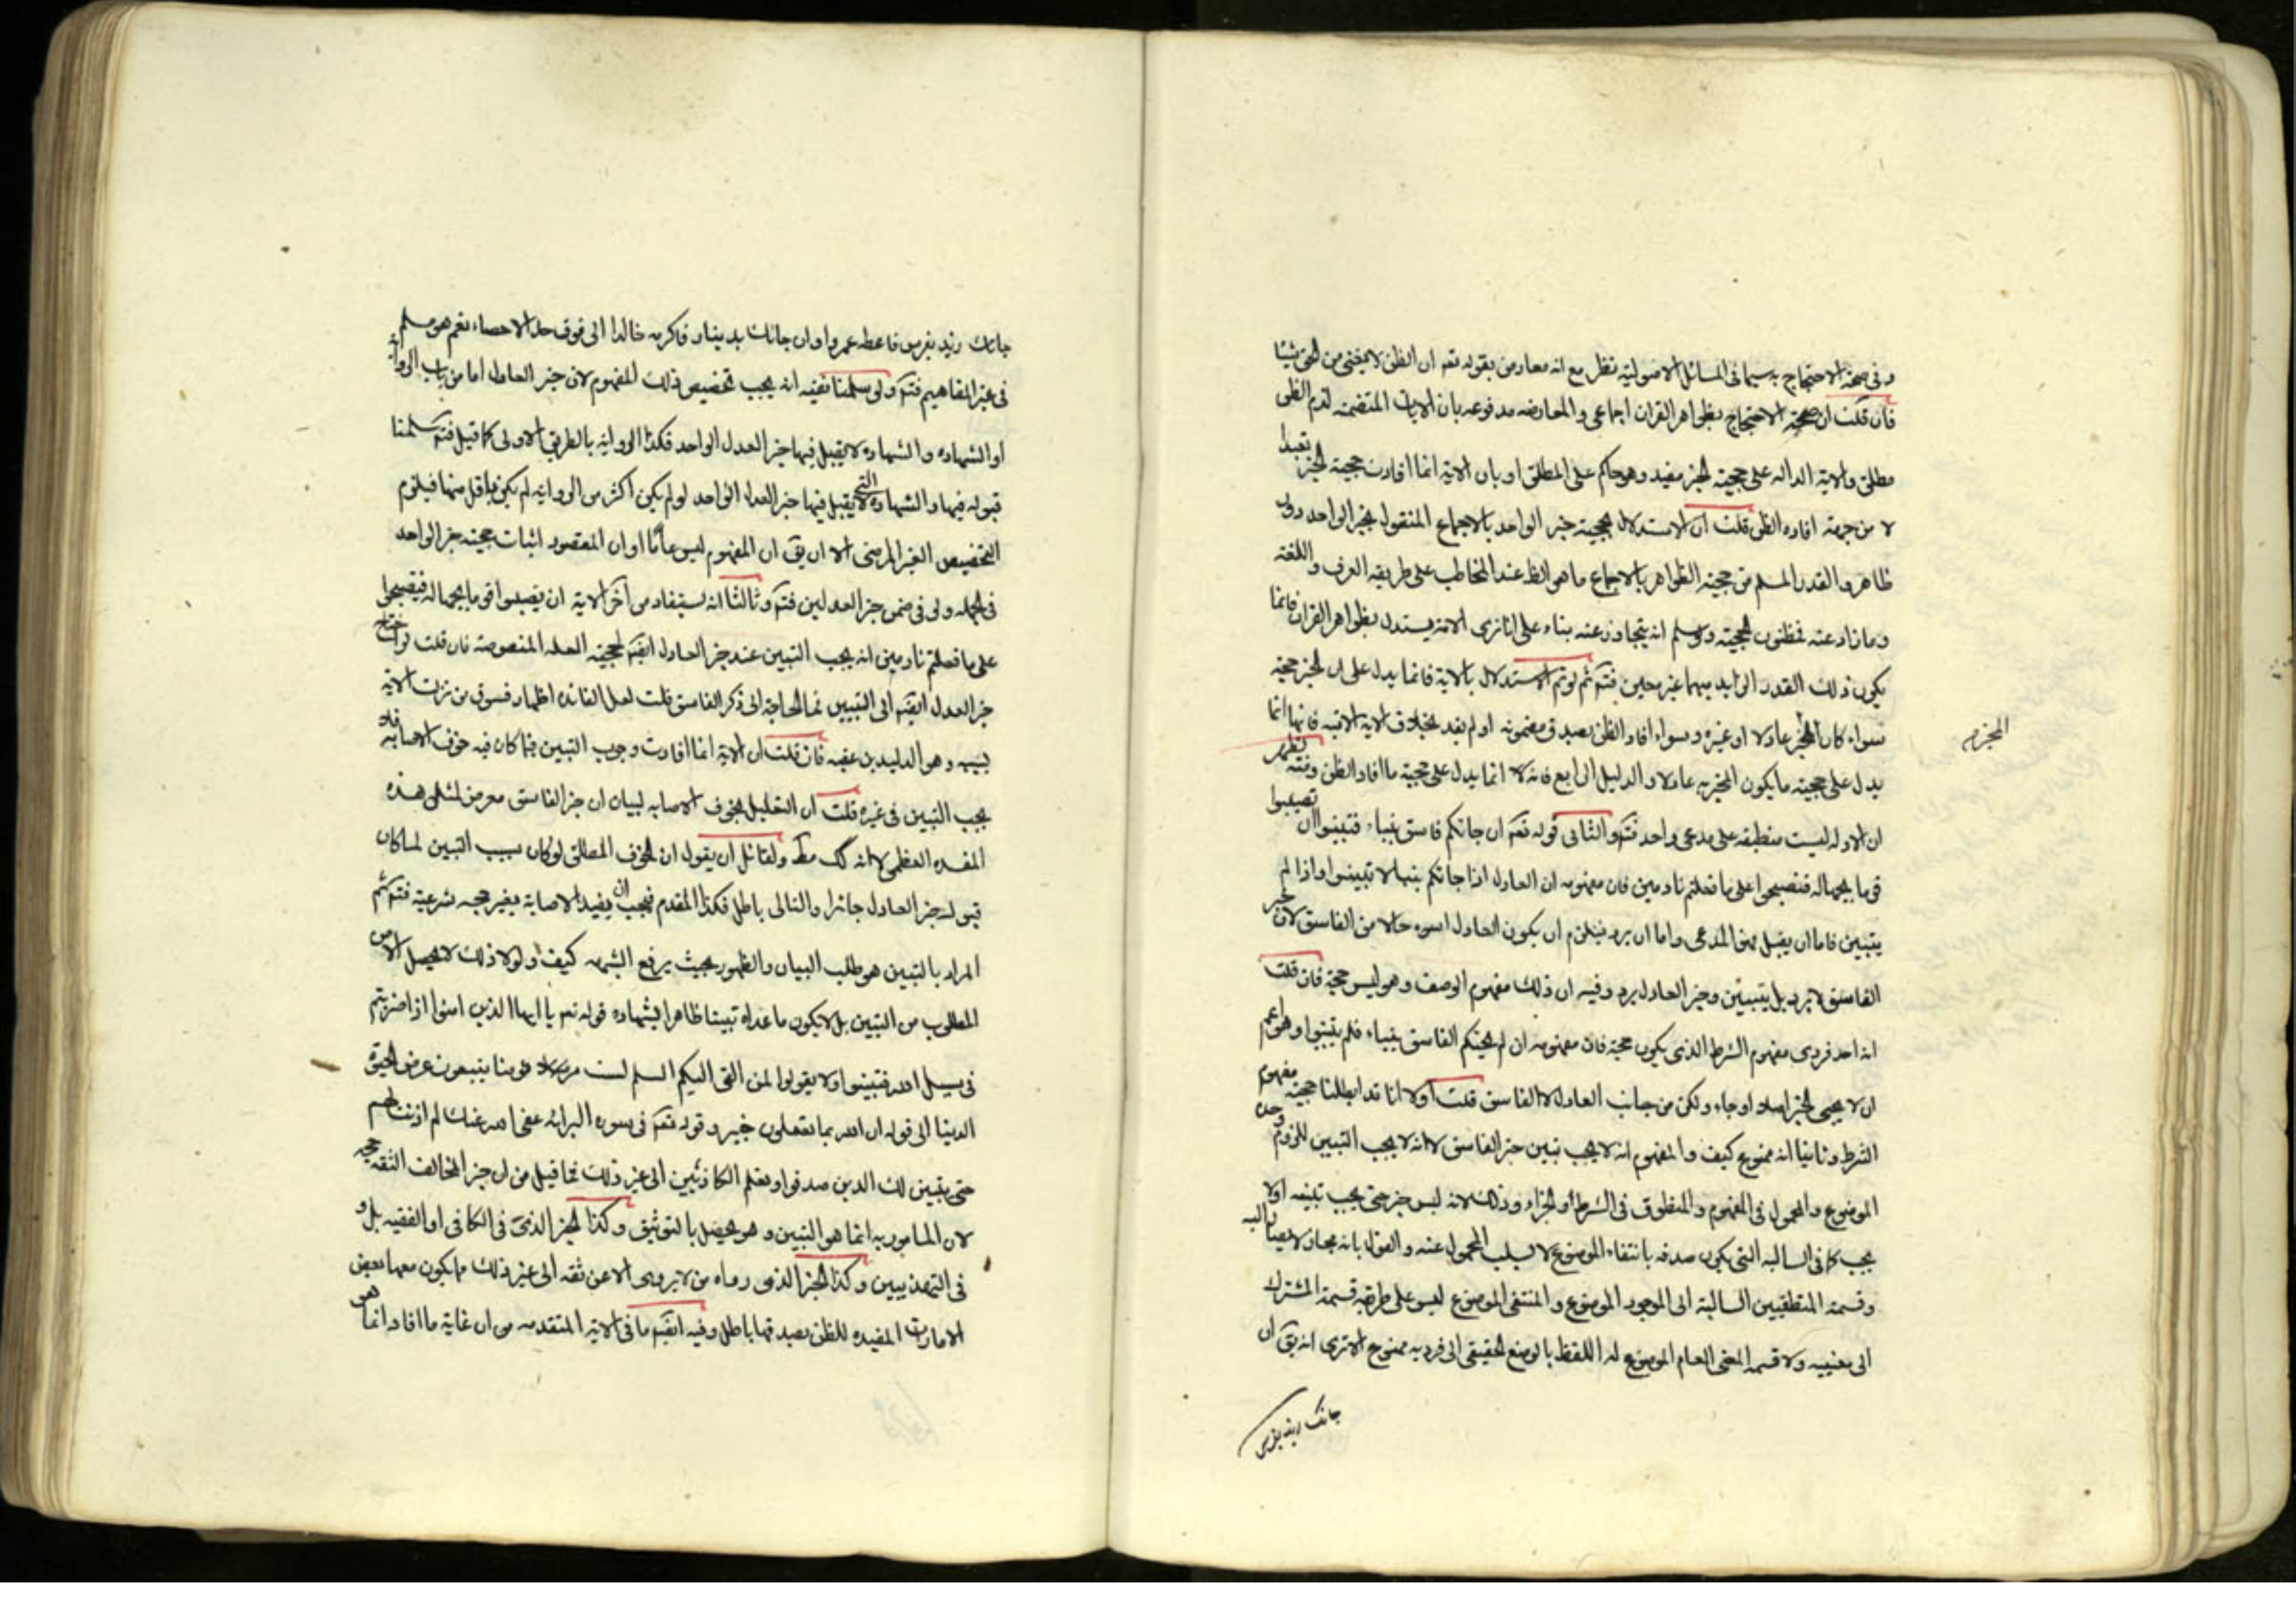 وفى صحة الاحتجاج به سيما فى المسائل الاصولية نظر مع انه معارض بقوله تعه ان الظن لا يغنى من الحق شيئا
فان قلت ان صحة الاحتجاج بظواهر القران اجماعى والمعارضه مدفوعه بان الايات المتضمنه لذم الظن
مطلق والاية الداله على حجية الخبر مفيد وهو حاكم على المطلق او بان الاية انما افادت حجية الخبر تعبدا
لا من جهة افاده الظن قلت ان الاستدلال بحجية خبر الواحد بالاجماع المنقول بخبر الواحد دور
ظاهر والقدر المسلم من حجية الظواهر بالاجماع ما هو الظ عند المخاطب على طريقه العرف واللغة
وما زاد عنه فمظنون الحجية ولو سلم انه يتجاوز عنه بناء على انا نرى الامة يستدل بظواهر القران فانما
يكون ذلك القدر الزايد مبهما غير معين فتم ثم لو تم الاستدلال بالاية فانما يدل على ان الخبر حجة
سواء كان المخبر عادلا او غيره وسواء افاد الظن بصدق مضمونه او لم يفد بخلاف الاية الاتيه فانها انما
يدل على حجية ما يكون المخبر به عادلا والدليل الرابع فانه لا انما يدل على حجية ما افاد الظن ومنه يظهر
المخبر م
ان الادله ليست منطبقه على مدعى واحد فتم والثانى قوله تعه ان جائكم فاسق بنباء فتبينوا ان تصيبوا
قوما بجهالة فتصبحوا على ما فعلتم نادمين فان مفهومه ان العادل اذا جائكم بنبا لا تبينوا واذا لم
يتبين فاما ان يقبل فهو المدعى واما ان يرد فيلزم ان يكون العادل اسوء حالا من الفاسق لان خبر
الفاسق لا يرد بل يتبين وخبر العادل يرد وفيه ان ذلك مفهوم الوصف وهو ليس حجة فان قلت
انه احد فردى مفهوم الشرط الذى يكون حجة فان مفهومه ان لم يجئكم الفاسق بنباء فلم يتبينوا وهو اعم
ان لا يجئ الخبر اصلا او جاء ولكن من جانب العادل لا الفاسق قلت اولا انا قد ابطلنا حجية مفهوم
الشرط وثانيا انه ممنوع كيف والمفهوم انه لا يجب تبين خبر الفاسق لا انه لا يجب التبين للزوم وحدة
الموضوع والمحمول فى المفهوم والمنطوق فى الشرط او الجزاء وذلك لانه ليس خبر حتى يجب تبينه اولا
يجب كما فى السالبه التى يكون صدقه بانتفاء الموضوع لا بسلب المحمول عنه والقول بانه مجاز لا يصار اليه
وقسمة المنطقيين السالبة الى الموجود الموضوع والمنتفى الموضوع ليس على طريقه قسمة المشترك
الى معنييه ولا قسمه المعنى العام الموضوع له اللفظ بالوضع الحقيقى الى فرديه ممنوع الا ترى انه يق ان
جائك زيد بفرس
جائك زيد بفرس فاعطه عمروا وان جائك بدينار فاكرمه خالدا الى فوق حد الاحصاء نعم هو مسلم
فى غير المفاهيم فتم ولئن سلمنا نفيه انه يجب تخصيص ذلك المفهوم لان خبر العادل اما من باب الرواية
او الشهاده والشهاده لا يقبل فيها خبر العدل الواحد فكذا الرواية بالطريق الاولى كما قيل فتم سلمنا
قبوله فيها والشهاده التى لا يقبل فيها خبر العدل الواحد لو لم يكن اكثر من الرواية لم يكن باقل منها فيلزم
التخصيص الغير المرضى الا ان يق ان المفهوم ليس عاما او ان المقصود اثبات حجية خبر الواحد
فى الجمله ولو فى ضمن خبر العدلين فتم وثالثا انه يستفاد من آخر الاية ان تصيبوا قوما بجهالة فتصبحوا
على ما فعلتم نادمين انه يجب التبين عند خبر العادل ايضه لحجية العلة المنصوصة فان قلت لو احتاج
خبر العدل ايضه الى التبين فما الحاجة الى ذكر الفاسق قلت لعل الفائده اظهار فسوق من نزلت الاية
بسببه وهو الوليد بن عقبه فان قلت ان الاية انما افادت وجوب التبين فيما كان فيه خوف الاصابة فلا
يجب التبين فى غيره قلت ان التعليل بخوف الاصابه لبيان ان خبر الفاسق معرض لمثل هذه
المفسده العظمى لا انه كك مط ولقائل ان يقول ان الخوف المطلق لو كان سبب التبين لما كان
قبوله خبر العادل جائزا والتالى باطل فكذا المقدم فيجب ان يفيد الاصابة بغير حجه شرعية فتم ثم
المراد بالتبين هو طلب البيان والظهور بحيث يرفع الشبهه كيف ولولا ذلك لا يحصل الامن
المطلوب من التبين بل لا يكون ما عداه تبينا ظاهرا بشهاده قوله تعه يا ايها الذين امنوا اذا ضربتم
فى سبيل الله فتبينوا ولا يقولوا لمن القى اليكم السلم لست مؤمنا يبتغون عرض الحيوة
الدنيا الى قوله ان الله بما تعملون خبير وقوله تعه فى سوره البرائه عفى الله عنك لم اذنت لهم
حتى يتبين لك الذين صدقوا وتعلم الكاذبين الى غير ذلك فما قيل من ان خبر المخالف الثقه حجه
لان المامور به انما هو التبين وهو يحصل بالتوثيق وكذا الخبر الذى فى الكافى او الفقيه بل و
فى التهذيبين وكذا الخبر الذى رواه من لا يروى الا عن ثقه الى غير ذلك مما يكون معها بعض
الامارات المفيده للظن بصدقها باطل وفيه ايضه ما فى الاية المتقدمه من ان غاية ما افاد انما هى